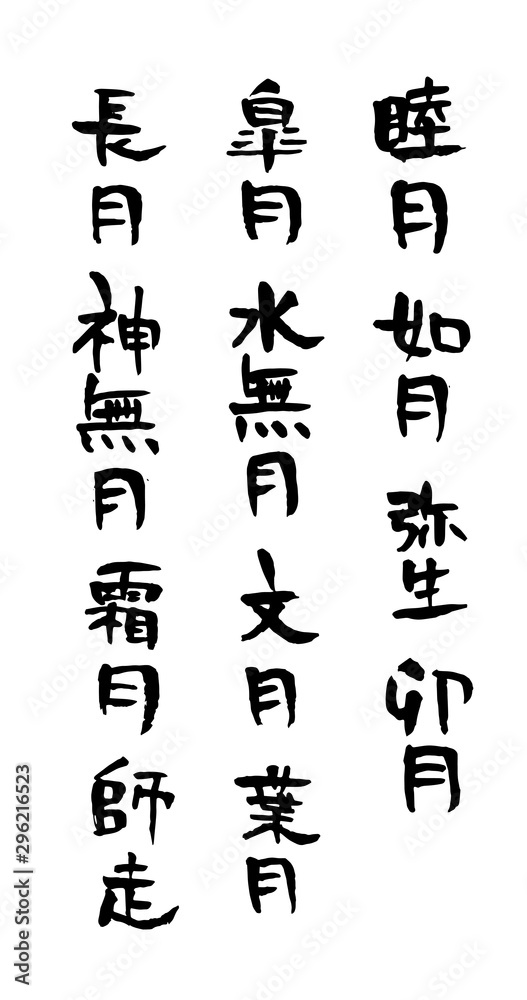 睦月 如月 弥生 卯月
皐月 水無月 文月 葉月
長月 神無月 霜月 師走
Adobe Stock | #296216523